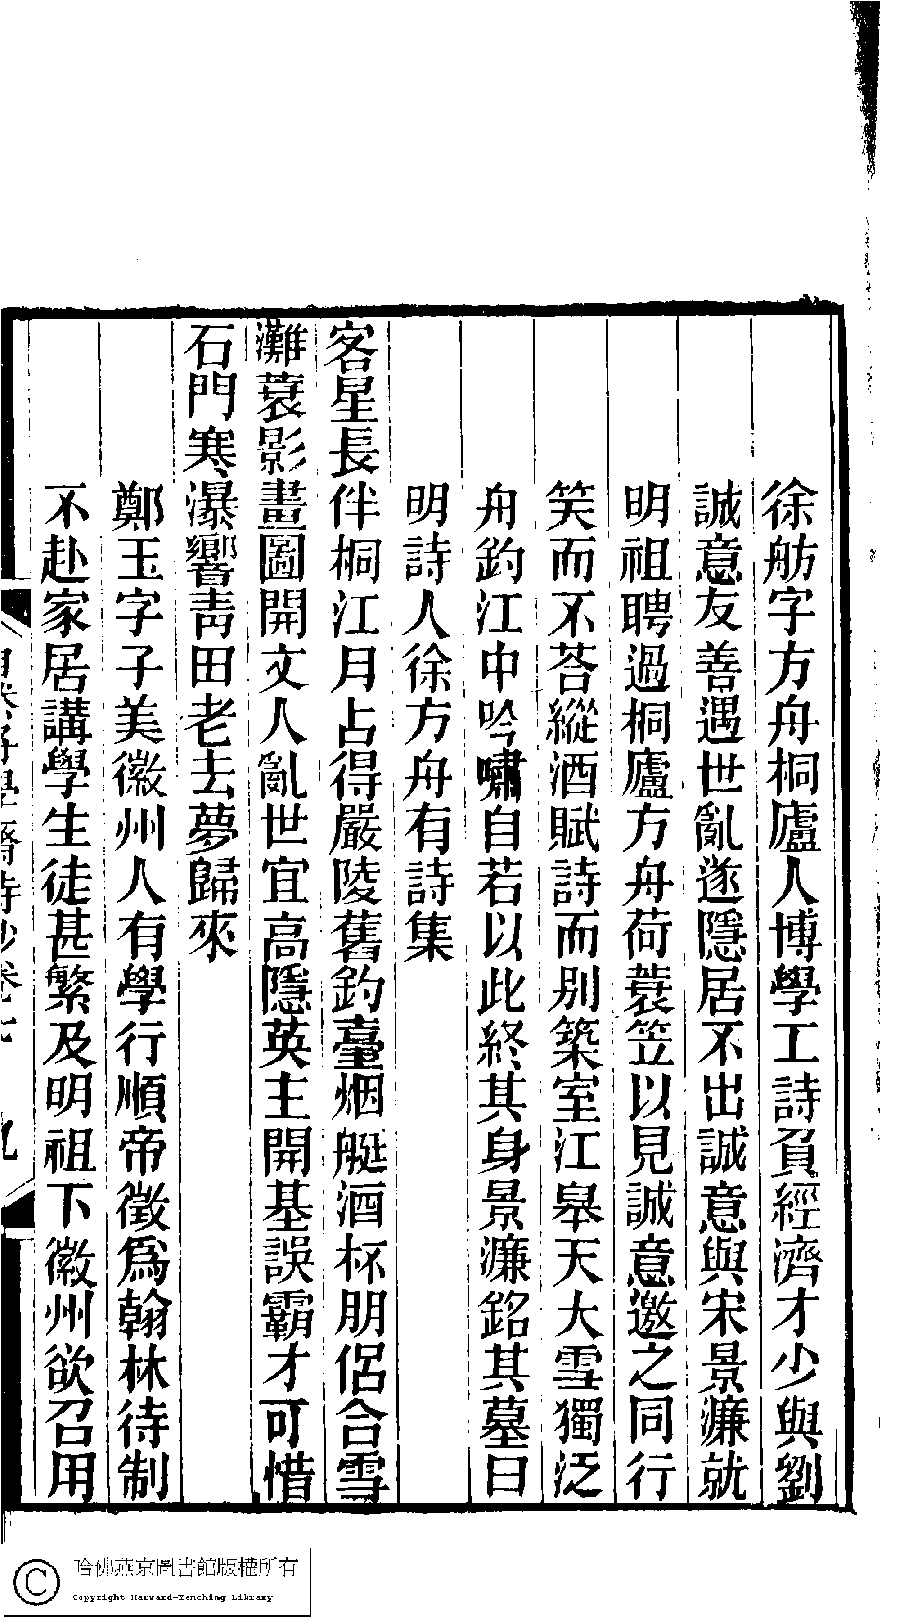 徐舫字方舟桐廬人博學工詩負經濟才少與劉
誠意友善遇世亂遂隱居不出誠意與宋景濂就
明祖聘過桐廬方舟荷蓑笠以見誠意邀之同行
笑而不荅縱酒賦詩而別築室江皋天大雪獨泛
舟釣江中吟嘯自若以此終其身景濂銘其墓曰
明詩人徐方舟有詩集
客星長伴桐江月占得嚴陵舊釣臺烟艇酒杯朋侶合雪
灘蓑影畫圖開文人亂世宜高隱英主開基誤霸才可惜
石門寒瀑響青田老去夢歸來
鄭玉字子美徽州人有學行順帝徵爲翰林待制
不赴家居講學生徒甚繁及明祖下徽州欲召用
哈佛燕京圖書館版權所有
Copyright Harvard-Yenching Library